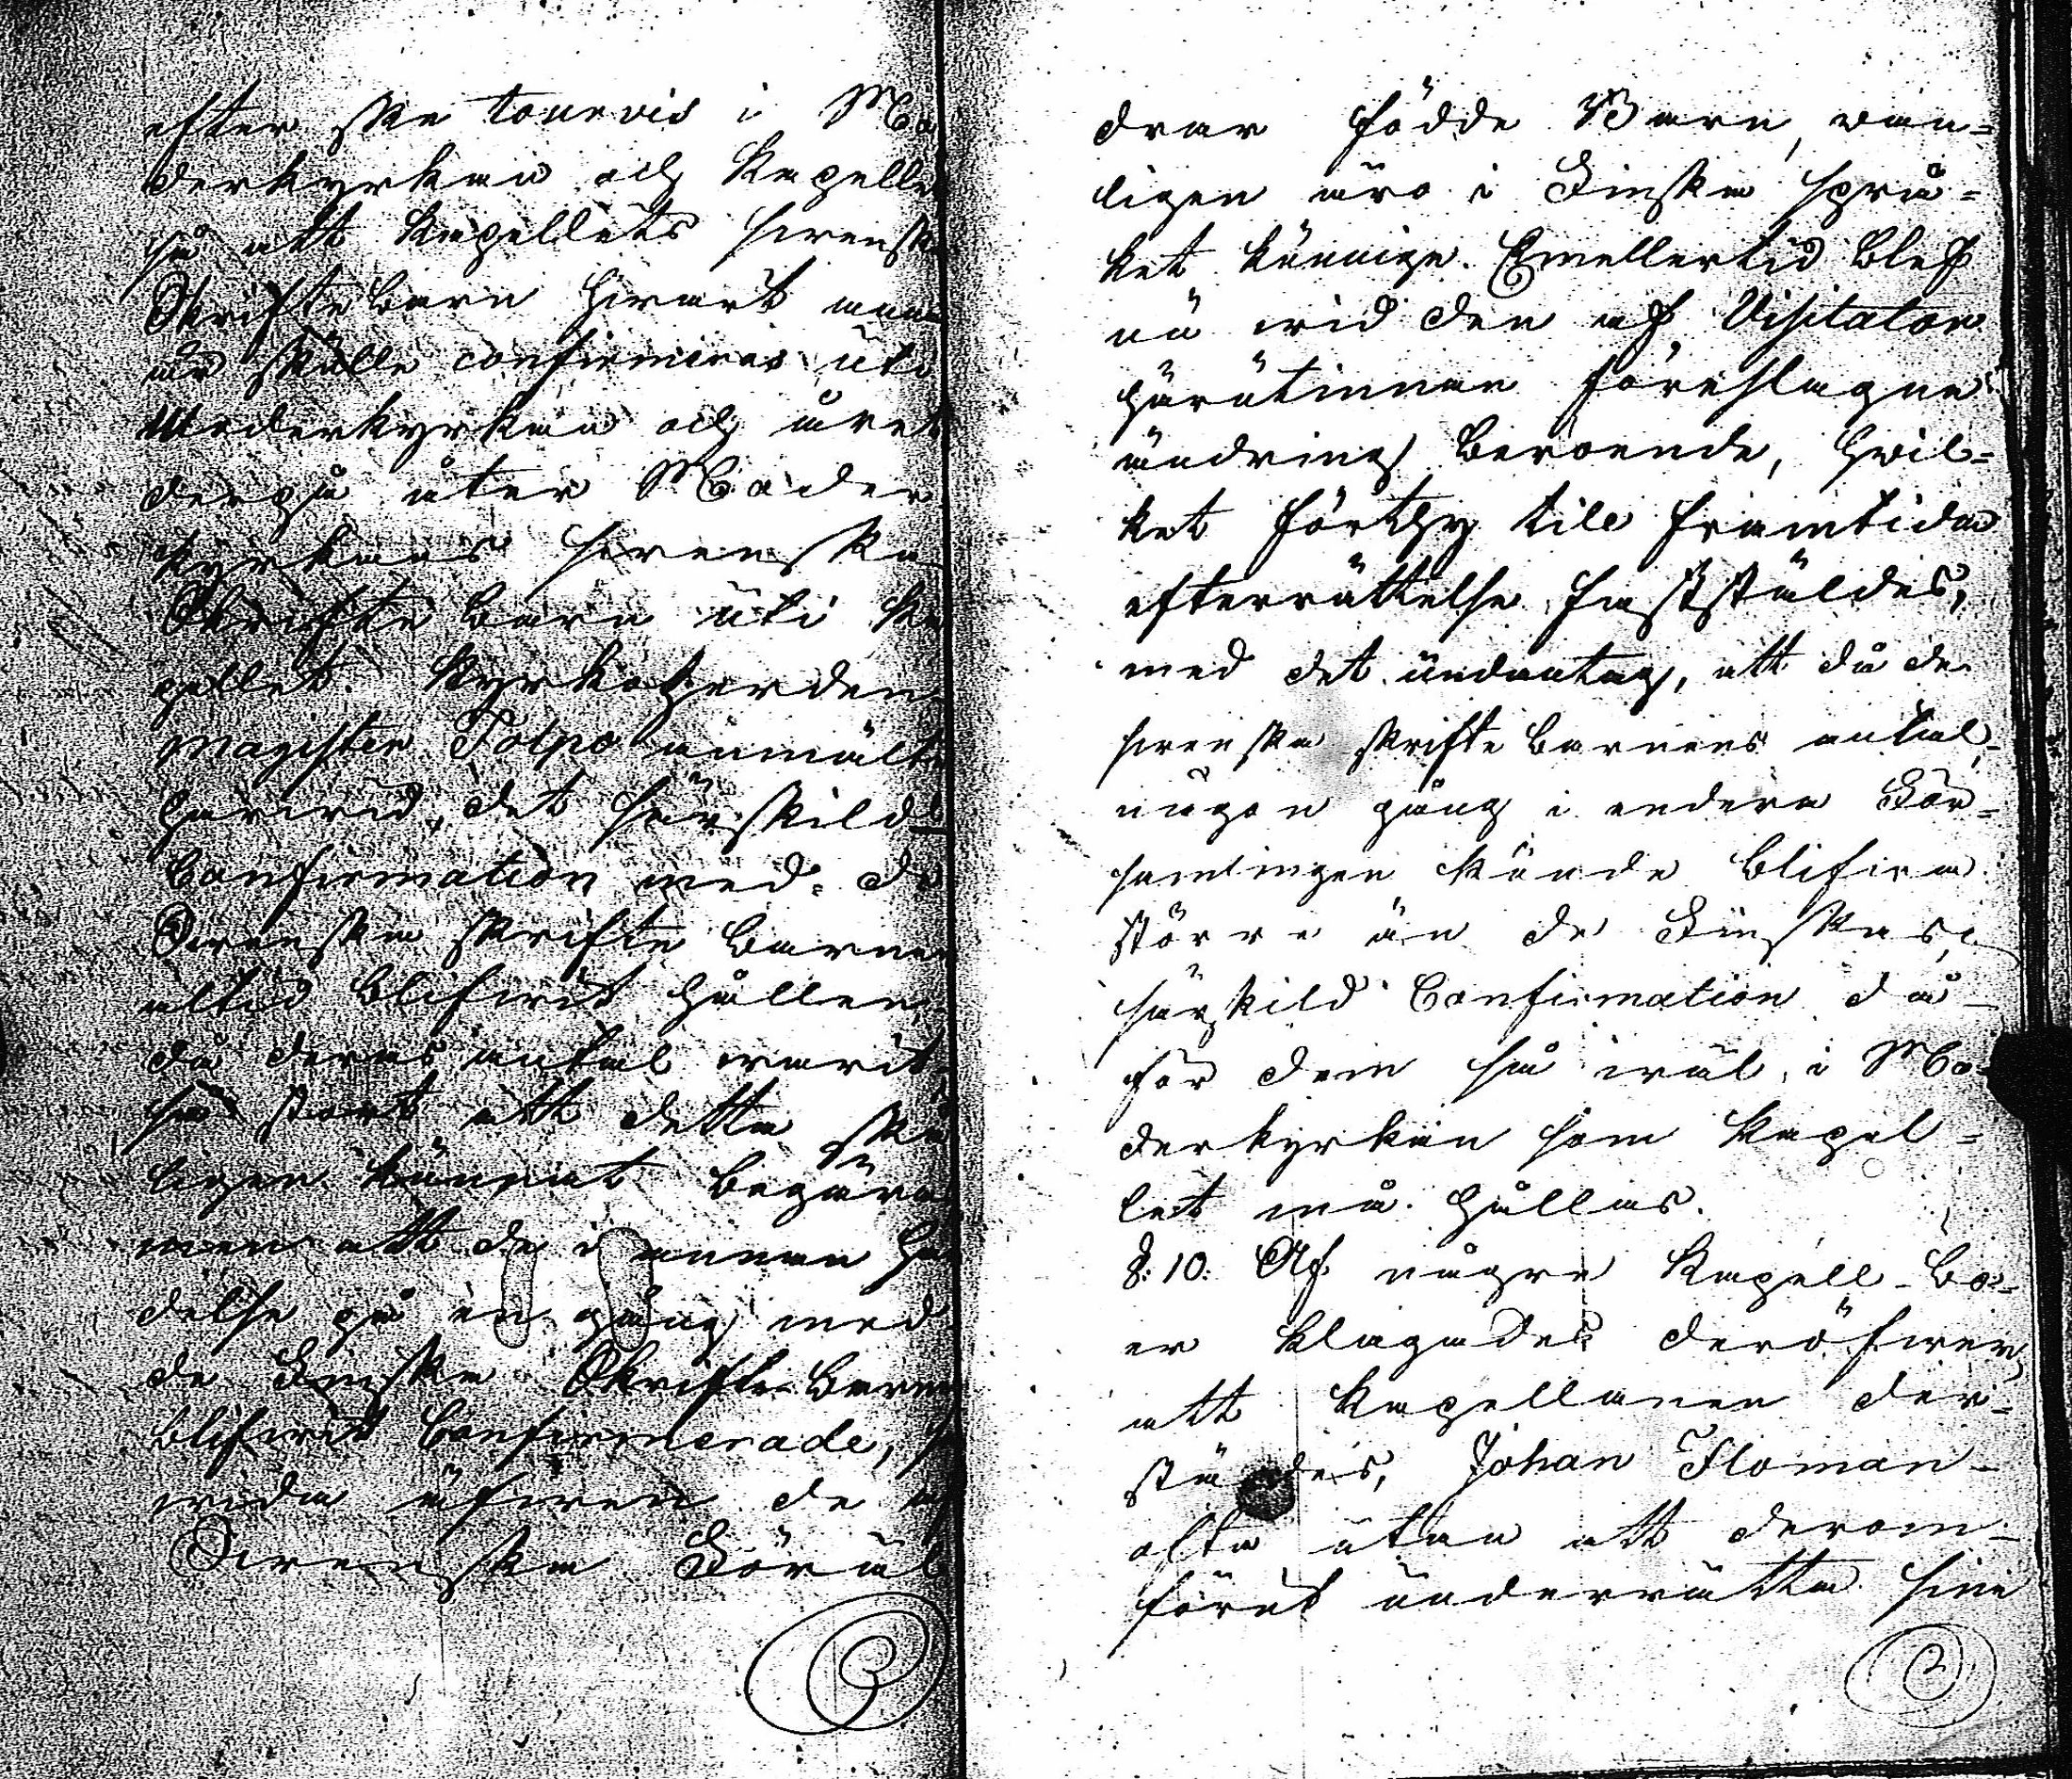 efter ske tourvis i Mo
derkyrkan och Kapelle
så att Kapellets svenska
Skriftebarn hvart annat
år skulle confirmeras uti
Moderkyrkan och året
derpå åter Moder
kyrkans svenska
Skriftebarn uti Ka
pellet. Kyrkoherden
Magister Tolpo anmälte
harvid, det särskild
Confirmation med de
Svenska skriftebarnen
altid blifvit hållen
då deras antal varit
så stort att detta skä
ligen kunnat begäras
men att de i annan hän
delse på en gång med
de Finska Skriftebarnen
blifvit Confirmerade,
vida äfven de af
Svenska Föräl
drar födde Barn, van=
ligen äro i Finska språ=
ket kunnige. Emellertid blef
nu vid den af Visitator
härutinnan föreslagne
ändring beroende, hvil=
ket förthy till framtida
efterrättelse fastställdes,
med det undantag, att då de
svenska skriftebarnens antal,
någon gång i endera För=
samlingen kunde blifva
större än de Finskas,
särskild Confirmation då
för dem så väl i Mo=
derkyrkan som Kapel=
let må hållas.
§: 10: Af någre Kapell-Bo=
er klagades deröfver,
att Kapellanen der=
städes, Johan Floman
ofta utan att derom
förut underrätta sine